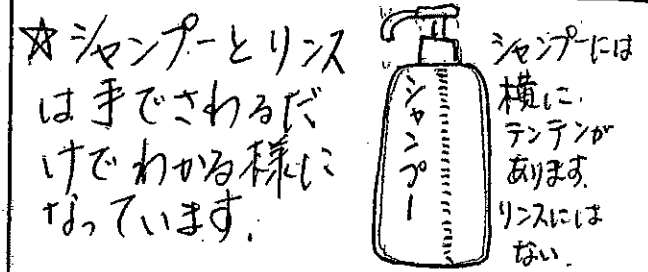 ☆シャンプーとリンス
は手でさわるだ
けでわかる様に
なっています.
シャンプー
シャンプーには
横に、
テンテンが
あります.
リンスには
ない.